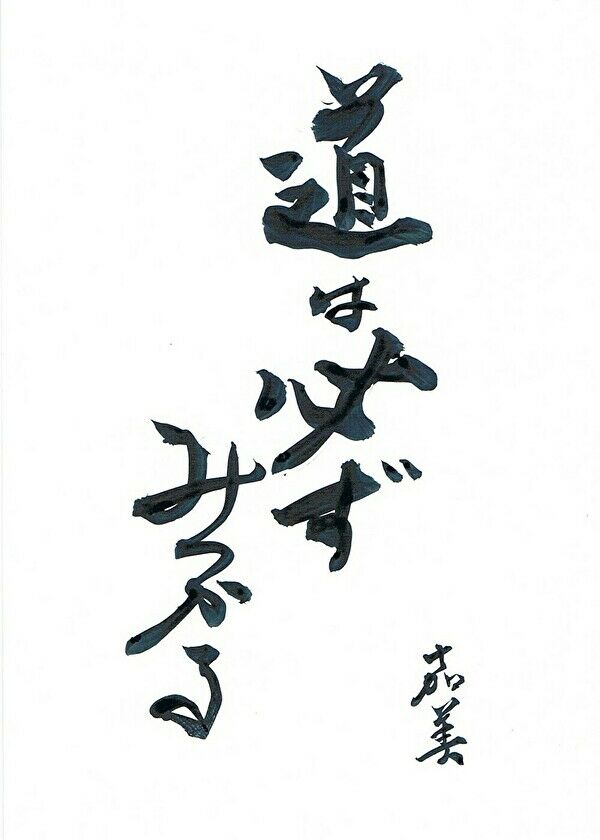 道は必ず
みつかる
嘉美